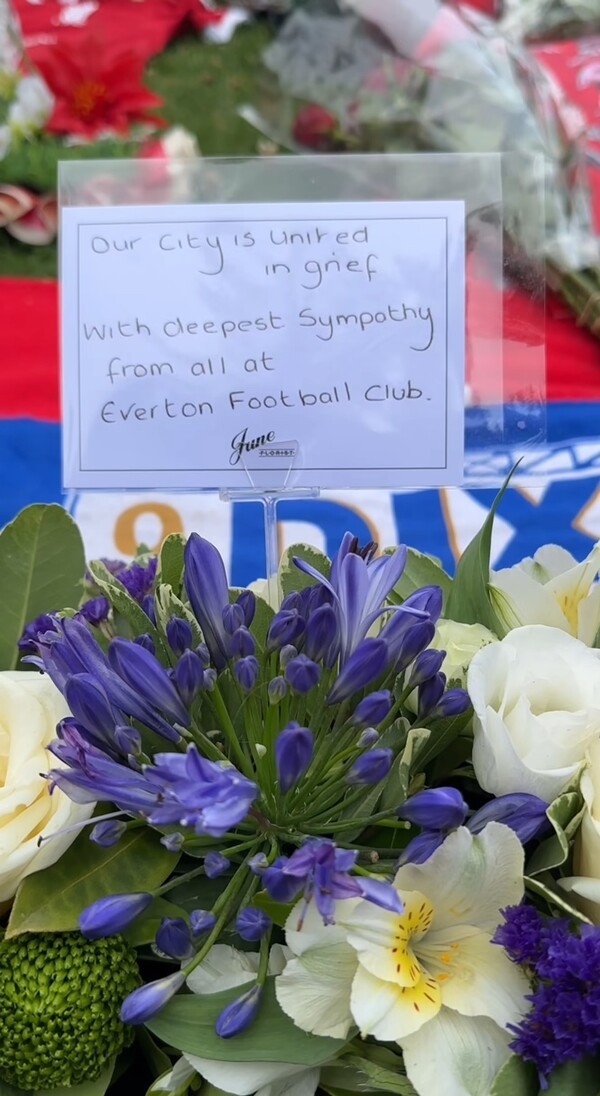 Our City is United
in grief
With deepest Sympathy
from all at
Everton Football Club.
June
FLORIST